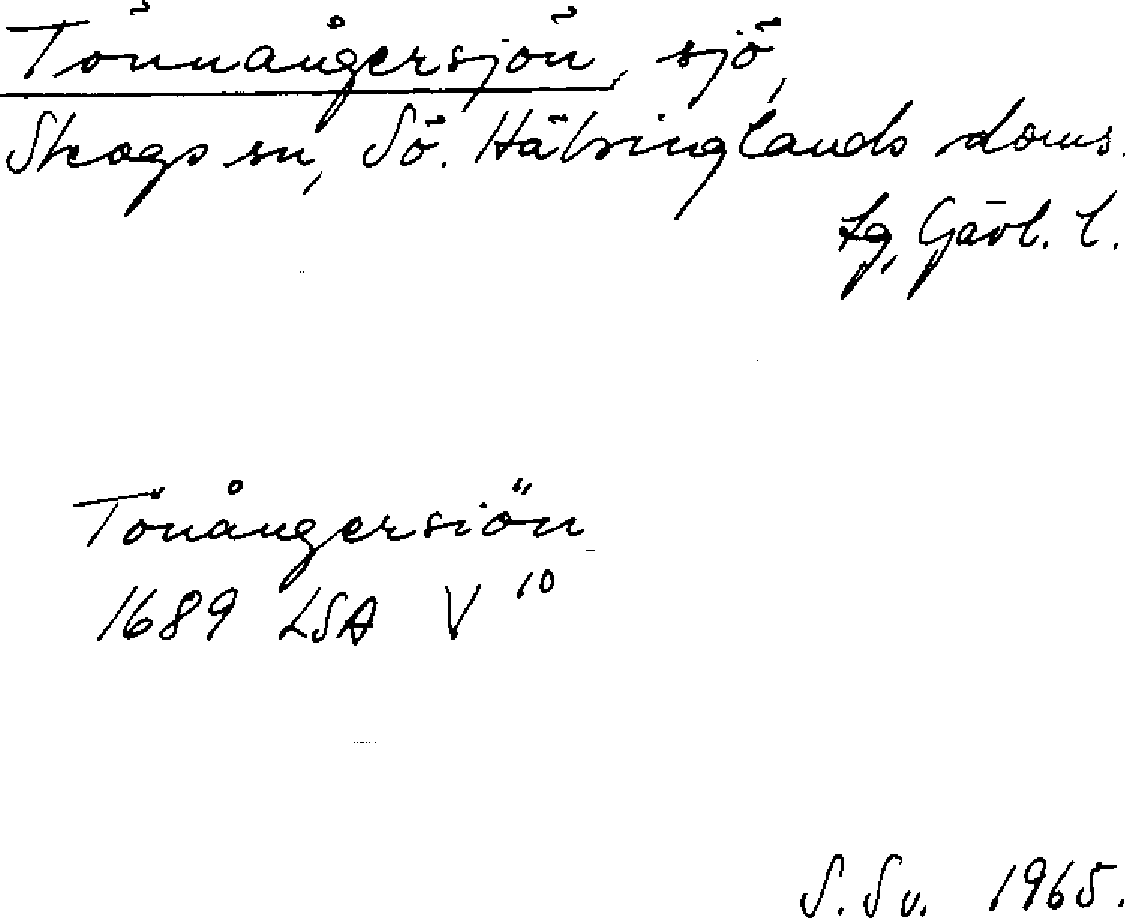 Tönnångersjön, sjö,
Skogs sn, Sö. Hälsinglands doms.
sg, Gävl. l.
Tönångersiön
1689 LSA V 10
S. Sv. 1965.